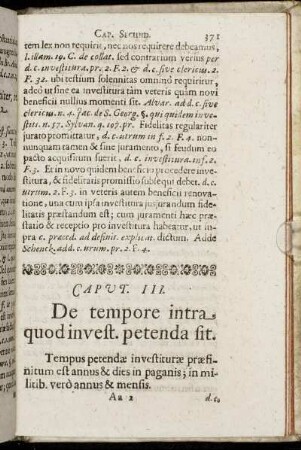 CAP. SECUND. 371
tem lex non requirit, nec nos requirere debeamus,
l. illam. 19. C. de collat. sed contrarium verius per
d. c. investitura. pr. 2. F. 2. & d. c. sive clericus. 2.
F. 32. ubi testium solennitas omninò requiritur,
adeò ut sine ea investitura tàm veteris quàm novi
beneficii nullius momenti sit. Alvar. ad d. c. sive
clericus. n. 4. Jac. de S. Georg. §. qui quidem inves-
tit. n. 57. Sylvan. q. 107. pr. Fidelitas regulariter
jurato promittitur, d. c. utrum in f. 2. F. 4. non-
nunquam tamen & sine juramento, si feudum eo
pacto acquisitum fuerit, d. c. investitura. inf. 2.
F. 3. Et in novo quidem beneficio procedere inve-
stitura, & fidelitatis promissio subsequi debet. d. c.
utrum. 2. F. 3. in veteris autem beneficii renova-
tione, una cum ipsa investitura jusjurandum fide-
litatis præstandum est; cum juramenti hæc præ-
statio & receptio pro investitura habeatur, ut in-
pra c. præced. ad definit. explicat. dictum. Adde
Schenck. add. c. utrum. pr. 2. F. 4.
CAPUT. III.
De tempore intra
quod invest. petenda sit.
Tempus petendæ investituræ præfi-
nitum est annus & dies in paganis; in mi-
litib. verò annus & mensis.
Aa 2 d. c.